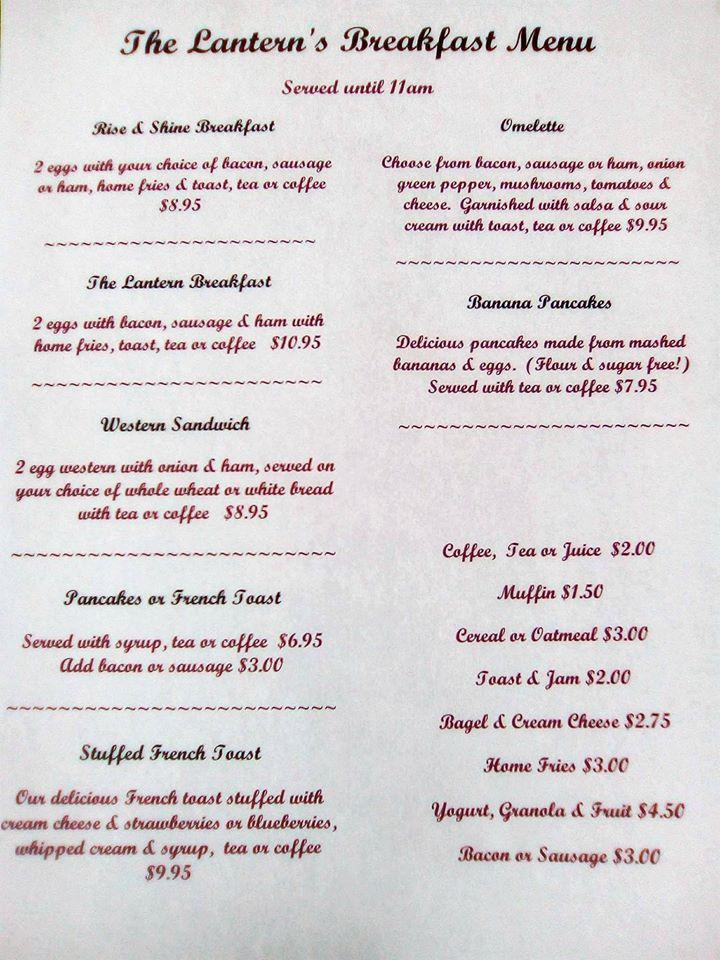 The Lantern's Breakfast Menu
Served until 11am
Rise & Shine Breakfast
2 eggs with your choice of bacon, sausage
or ham, home fries & toast, tea or coffee
$8.95
~~~~~~~~~~~~~~~~~~~~~~
The Lantern Breakfast
2 eggs with bacon, sausage & ham with
home fries, toast, tea or coffee $10.95
~~~~~~~~~~~~~~~~~~~~~~~
Western Sandwich
2 egg western with onion & ham, served on
your choice of whole wheat or white bread
with tea or coffee $8.95
~~~~~~~~~~~~~~~~~~~~~~~~~
Pancakes or French Toast
Served with syrup, tea or coffee $6.95
Add bacon or sausage $3.00
~~~~~~~~~~~~~~~~~~~~~~~~~
Stuffed French Toast
Our delicious French toast stuffed with
cream cheese & strawberries or blueberries,
whipped cream & syrup, tea or coffee
$9.95
Omelette
Choose from bacon, sausage or ham, onion
green pepper, mushrooms, tomatoes &
cheese. Garnished with salsa & sour
cream with toast, tea or coffee $9.95
~~~~~~~~~~~~~~~~~~~~~~~
Banana Pancakes
Delicious pancakes made from mashed
bananas & eggs. (Flour & sugar free!)
Served with tea or coffee $7.95
~~~~~~~~~~~~~~~~~~~~~~~
Coffee, Tea or Juice $2.00
Muffin $1.50
Cereal or Oatmeal $3.00
Toast & Jam $2.00
Bagel & Cream Cheese $2.75
Home Fries $3.00
Yogurt, Granola & Fruit $4.50
Bacon or Sausage $3.00